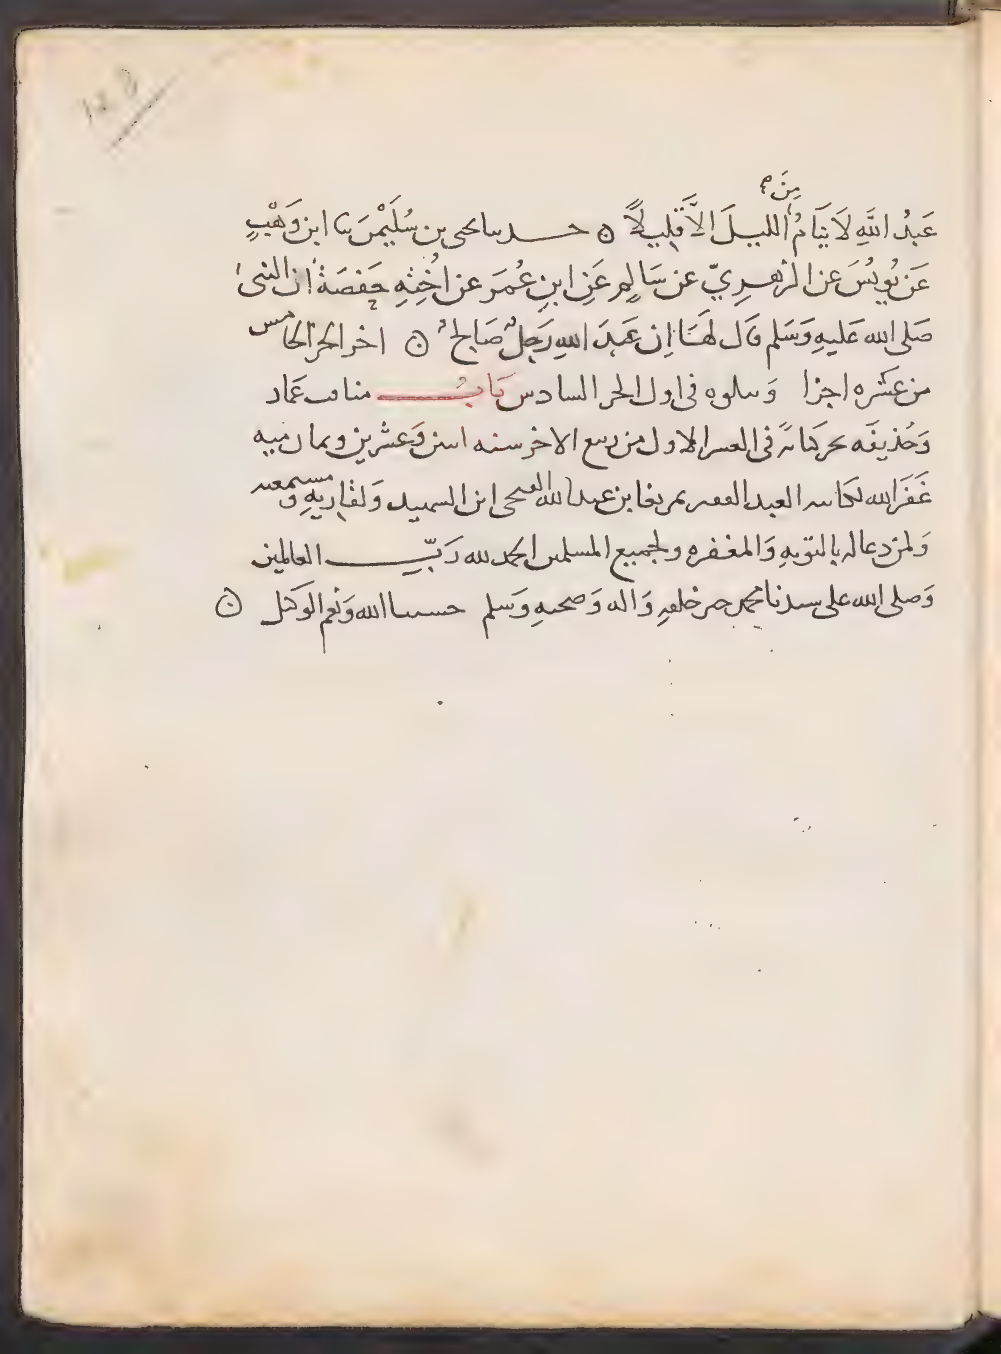 مِنَ
عَبْدُ اللَّهِ لَا يَنَامُ اللَّيلَ الَّا قَلِيلًا ه حدثنا يحيى بن سُلَيْمٰنَ ثنا ابن وَهْبٍ
عَن يُونِسُ عن الزهرِيّ عن سَالِمٍ عَنِ ابنِ عُمَر عن اُخْتِهِ حَفصَةَ أن النبى
صَلى الله عَليهِ وَسَلم قال لَهَا إن عَبدَ اللهِ رَجلٌ صَالحٌ ه اخر الجز الخامس
من عَشره اجزا وَيتلوه فى اول الجز السادس بَابُ مناقب عَمار
وَحُذيفَه نحر كتابةً فى العشر الاول من ربيع الاخر سنه اثنين وَعشرين وثمان ميه
غَفَر الله لكاتبه العبد الفقير بن عبد الله ابن السميد وَلقاريهِ وَمستمعيه
وَلمن دعا له بالتوبهِ وَالمغفره ولجميع المسلمين الحمد لله رَبّ العالمين
وَصلى الله على سيدنا محمد خير خلقهِ وَاله وَصحبهِ وَسلم حسبنا الله وَنعم الوكيل ه